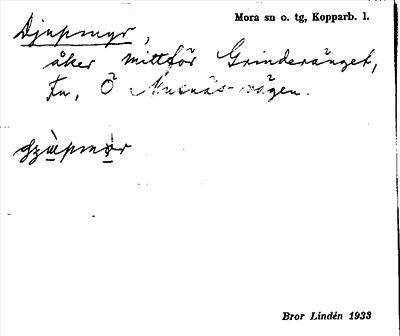 Mora sn o. tg, Kopparb. l.
Djupmyr,
åker mittför Grinderänget,
Fu, Ö Musnäs-vägen.
Bror Lindén 1933